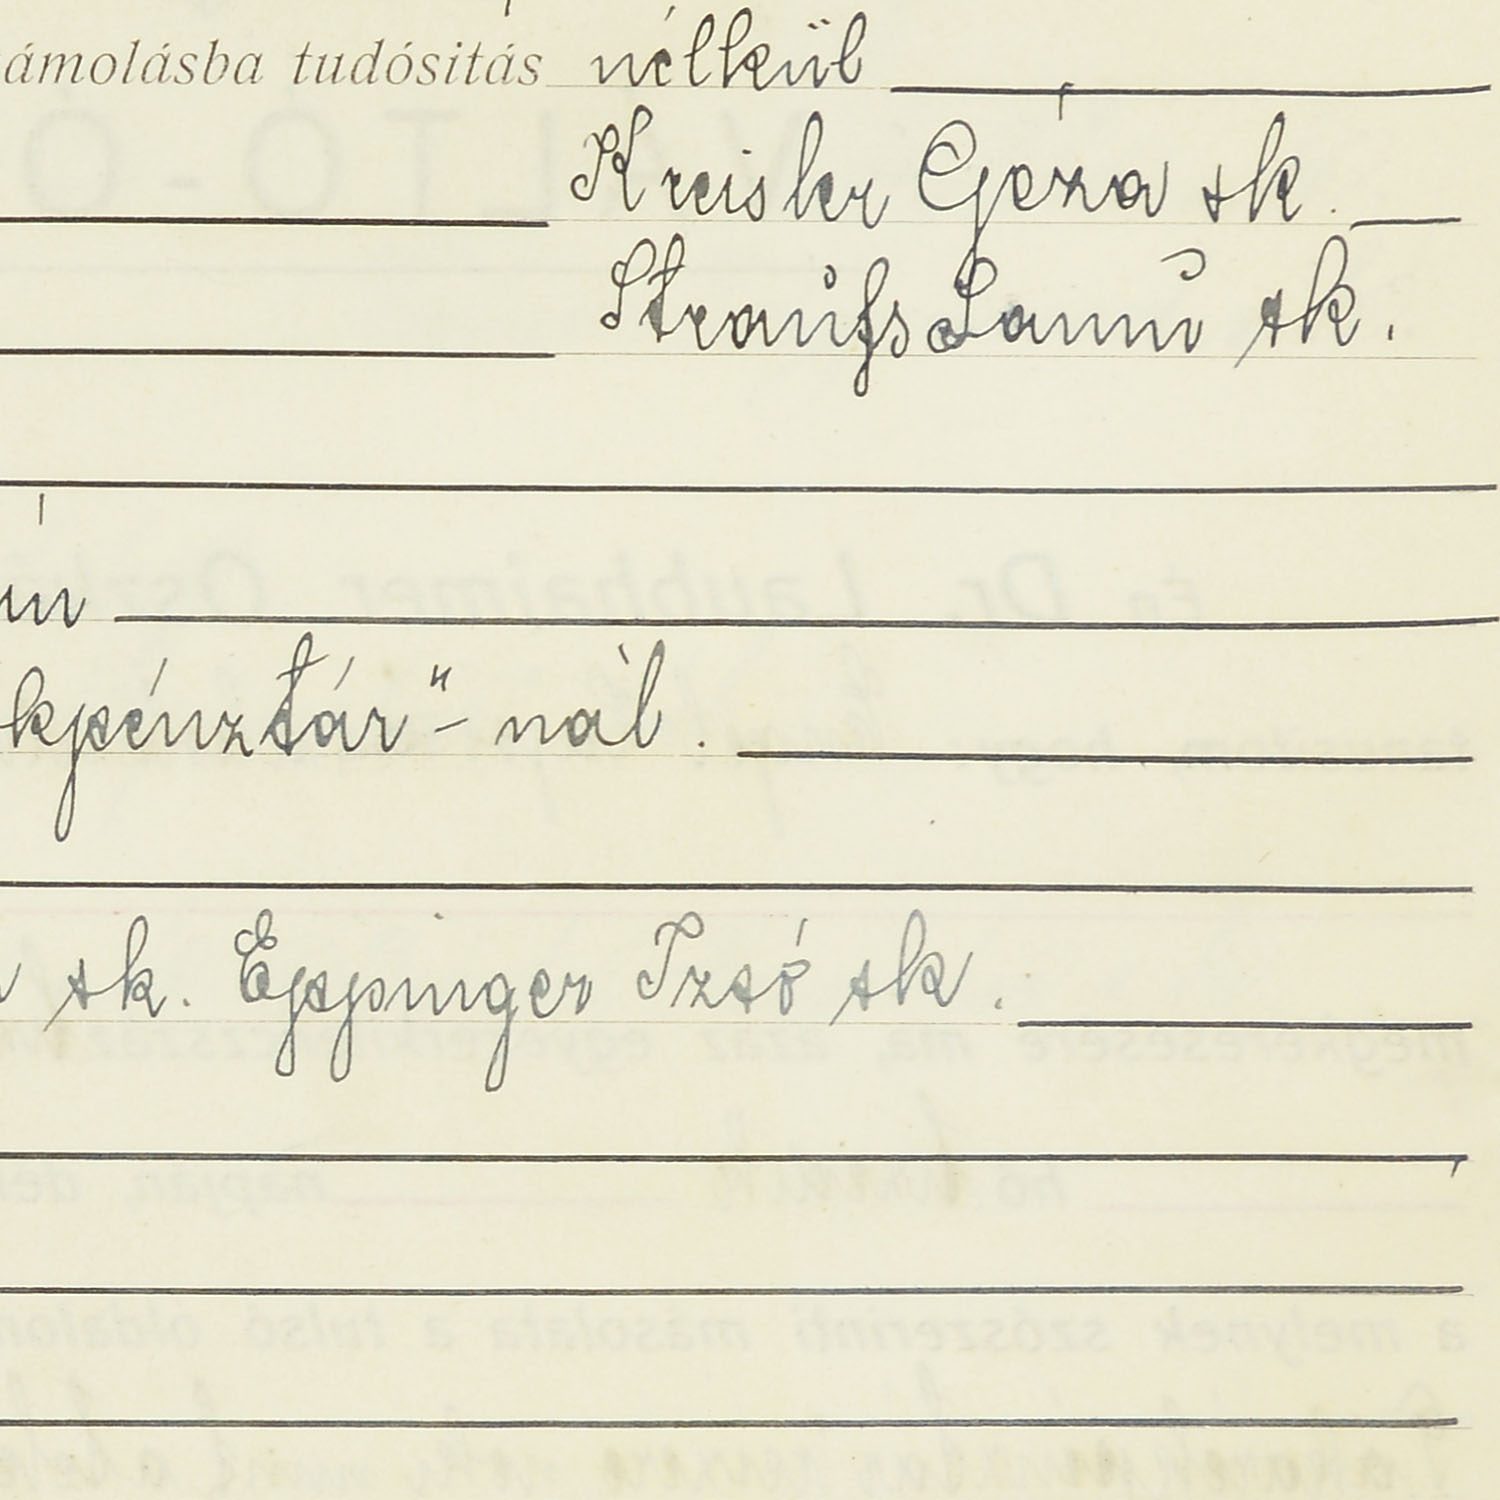 ámolásba tudósitás nélkül
Kreisler Géza sk.
Straufs Samu sk.
kpénztár"-nál.
sk. Eppinger Izsó sk.